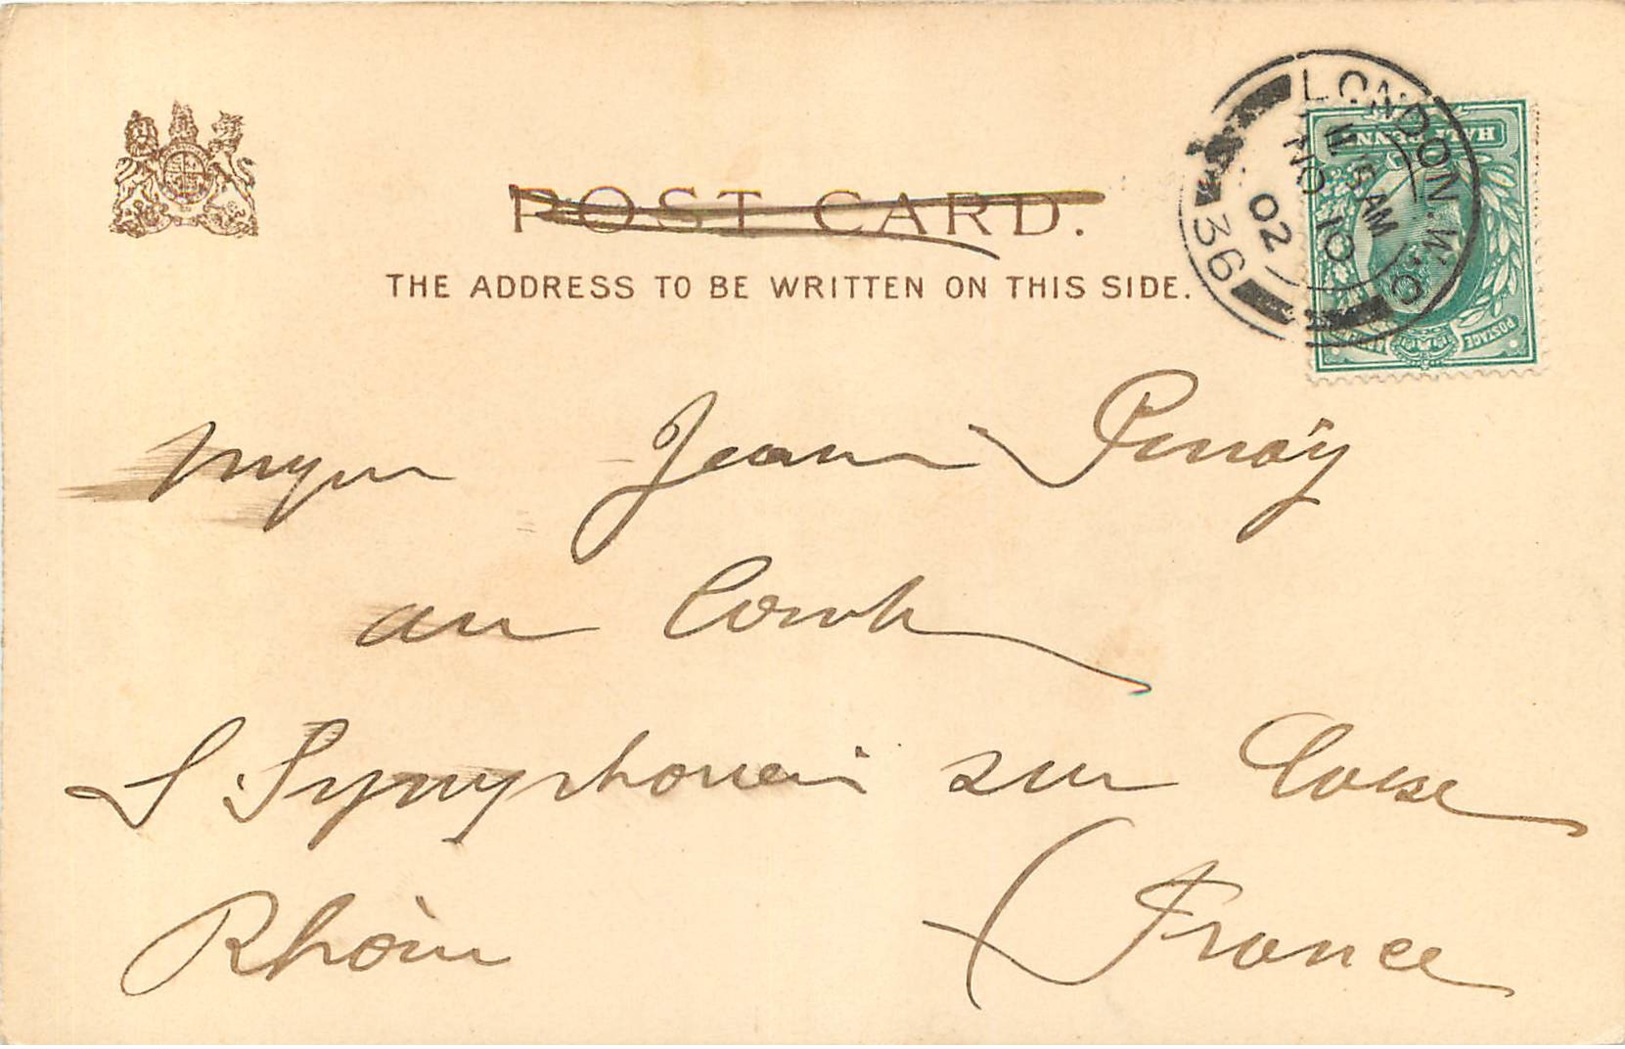 POST CARD.
THE ADDRESS TO BE WRITTEN ON THIS SIDE.
LONDON. W.C.
AM
NO 10
02
36
HALF PENNY
POSTAGE
Jean Pinay
au
S Symphorien sur Coise
Rhône
(France